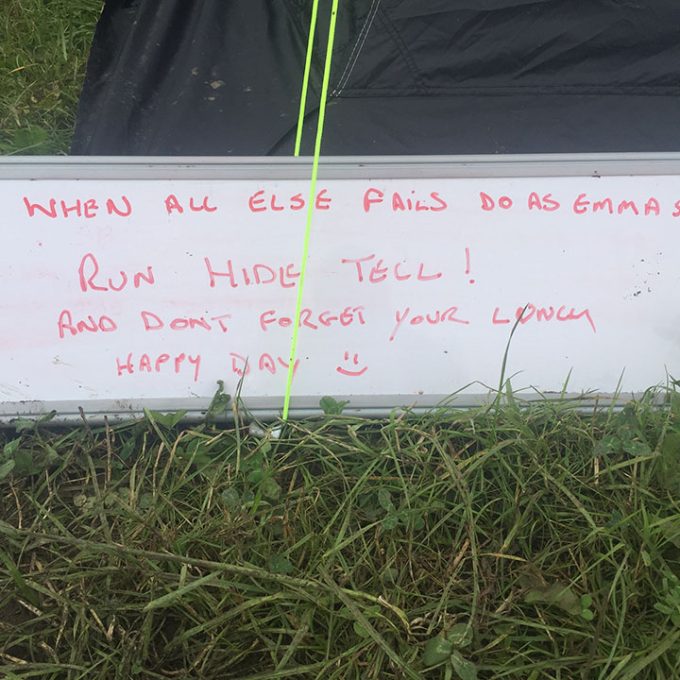 WHEN ALL ELSE FAILS DO AS EMMA S
RUN HIDE TELL!
AND DONT FORGET YOUR LUNCH
HAPPY DAY